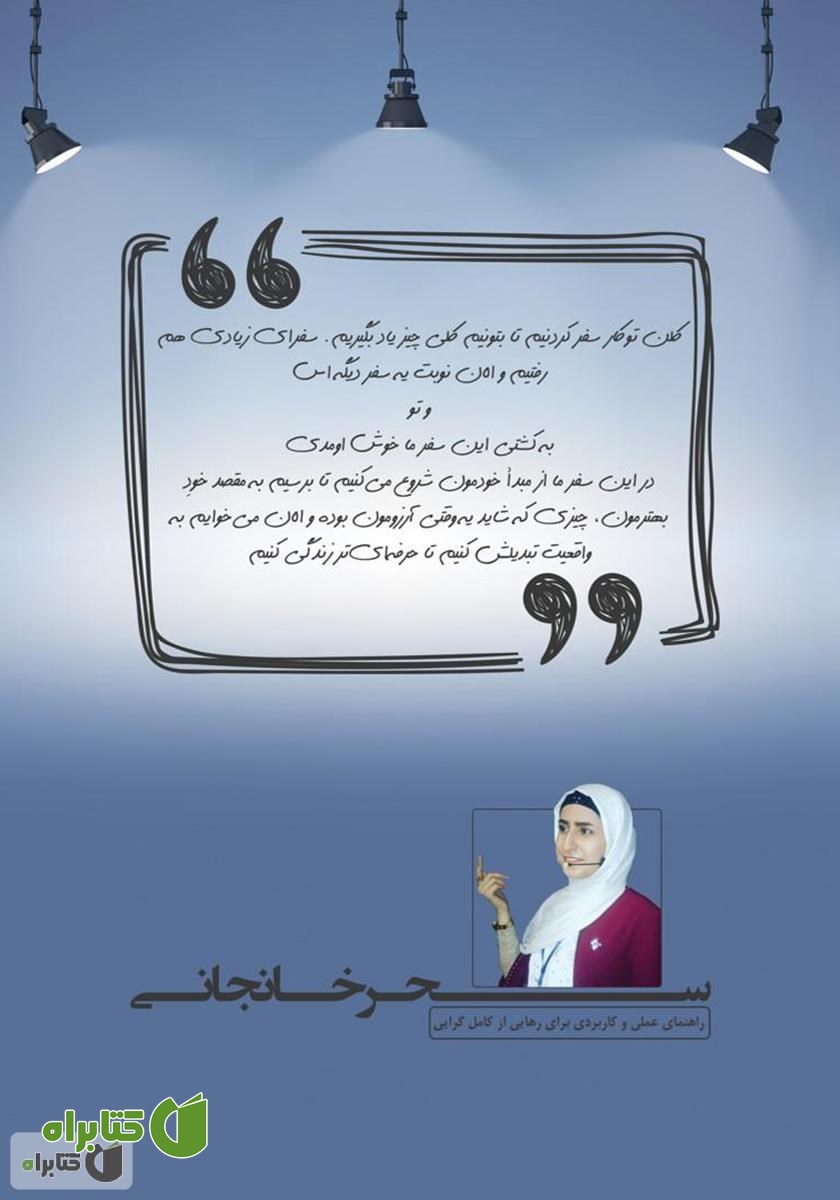 کلن تو کار سفر کردنیم تا بتونیم کلی چیز یاد بگیریم. سفرای زیادی هم
رفتیم و الان نوبت یه سفر دیگه اس
و تو
به کشتی این سفر ما خوش اومدی
در این سفر ما از مبدأ خودمون شروع می‌کنیم تا برسیم به مقصد خودِ
بهترمون، چیزی که شاید یه وقتی آرزومون بوده و الان می‌خوایم به
واقعیت تبدیلش کنیم تا حرفه‌ای‌تر زندگی کنیم
سحر خانجانی
راهنمای عملی و کاربردی برای رهایی از کامل گرایی
کتابراه
کتابراه